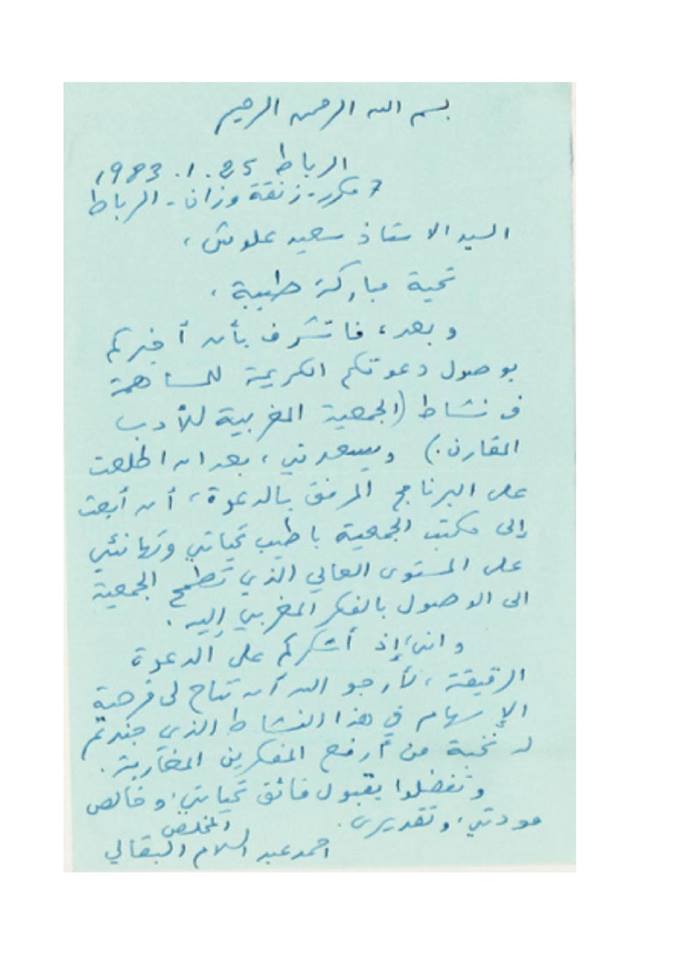 بسم الله الرحمن الرحيم
الرباط 25 . 1 . 1983
7 مكرر - زنقة وزان - الرباط
السيد الاستاذ سعيد علوش ،
تحية مباركة طيبة .
وبعد ، فاتشرف بأن أخبركم
بوصول دعوتكم الكريمة للمساهمة
في نشاط (الجمعية المغربية للأدب
المقارن .) ويسعدني ، بعد ان اطلعت
على البرنامج المرفق بالدعوة ، أن أبعث
إلى مكتب الجمعية باطيب تحياتي وتهانئي
على المستوى العالي الذي تطمح الجمعية
الى الوصول بالفكر المغربي إليه .
واني إذ أشكركم على الدعوة
الرقيقة ، لأرجو الله أن تتاح لي فرصة
الإسهام في هذا النشاط الذي جندتم
له نخبة من أرفع المفكرين المغاربة .
وتفضلوا بقبول فائق تحياتي ، وخالص
مودتي ، وتقديري .
المخلص
احمد عبد السلام البقالي